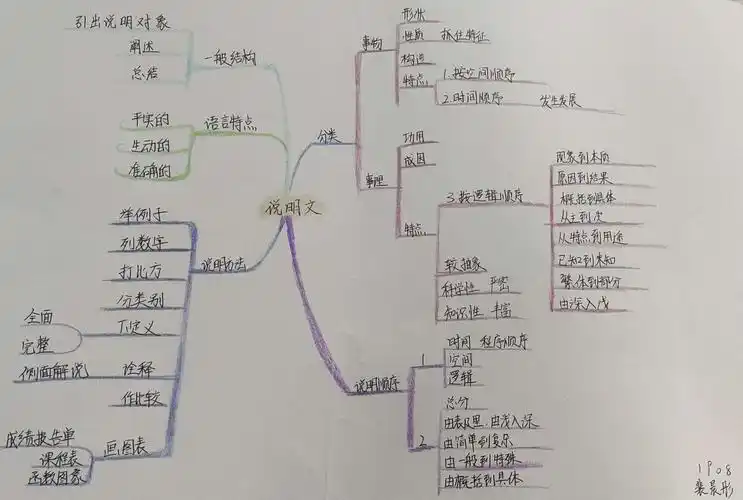 说明文
一般结构
引出说明对象
阐述
总结
语言特点
平实的
生动的
准确的
说明方法
举例子
列数字
打比方
分类别
下定义
全面
完整
诠释
侧面解说
作比较
画图表
成绩报告单
课程表
函数图象
分类
事物
形状
性质 抓住特征
构造
特点
1.按空间顺序
2.时间顺序 发生发展
事理
功用
成因
特点
3.按逻辑顺序
现象到本质
原因到结果
概括到具体
从主到次
从特点到用途
已知到未知
整体到部分
由深入浅
较抽象
科学性 严密
知识性 丰富
说明顺序
1
时间 程序顺序
空间
逻辑
2
总分
由表及里 由浅入深
由简单到复杂
由一般到特殊
由概括到具体
1908